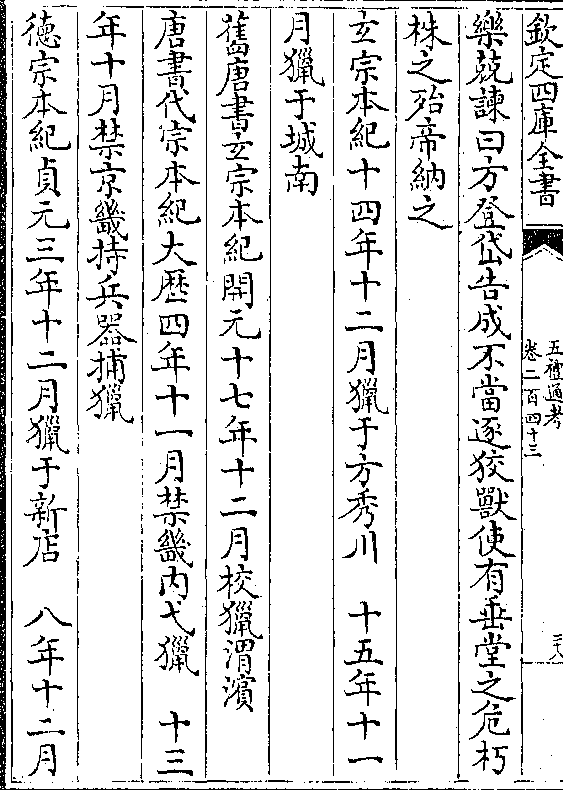 欽定四庫全書
五禮通考
卷二百四十三
三八
樂兢諫曰方登岱告成不當逐狡獸使有垂堂之危朽
株之殆帝納之
玄宗本紀十四年十二月獵于方秀川　十五年十一
月獵于城南
舊唐書玄宗本紀開元十七年十二月校獵渭濱
唐書代宗本紀大歷四年十一月禁畿内弋獵　十三
年十月禁京畿持兵器捕獵
德宗本紀貞元三年十二月獵于新店　八年十二月